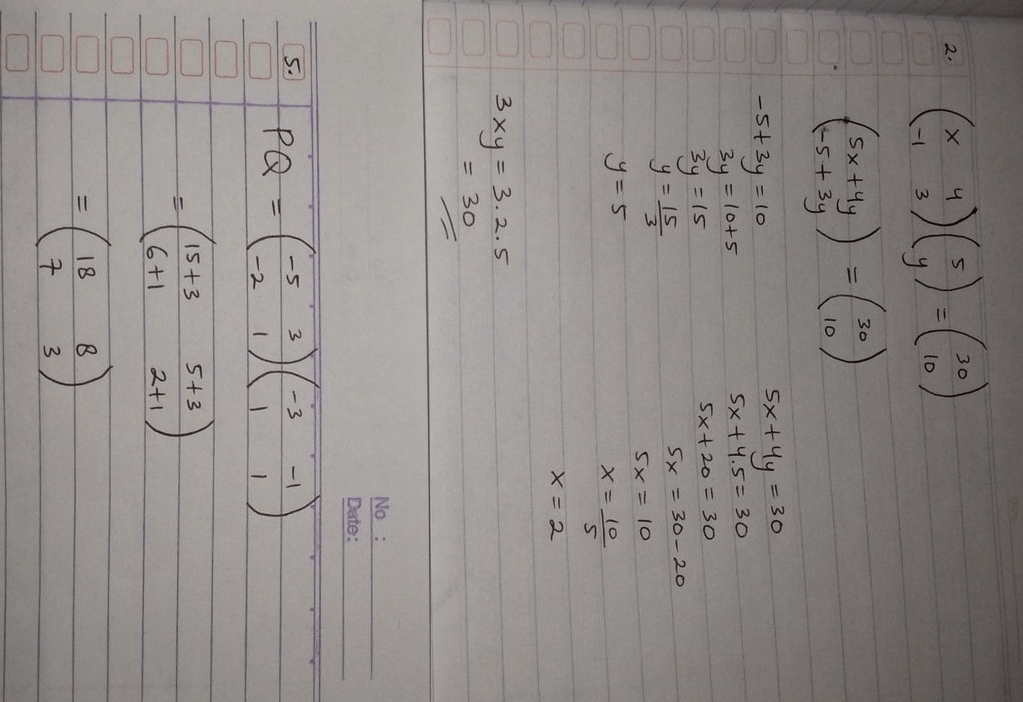 2. ( x 4 ) ( 5 ) = ( 30 )
( -1 3 ) ( y ) ( 10 )
( 5x + 4y ) = ( 30 )
( -5 + 3y ) ( 10 )
-5 + 3y = 10
3y = 10 + 5
3y = 15
y = 15/3
y = 5
5x + 4y = 30
5x + 4.5 = 30
5x + 20 = 30
5x = 30 - 20
5x = 10
x = 10/5
x = 2
3xy = 3.2.5
= 30
No :
Date:
5. PQ = ( -5 3 ) ( -3 -1 )
( -2 1 ) ( 1 1 )
= ( 15+3 5+3 )
( 6+1 2+1 )
= ( 18 8 )
( 7 3 )